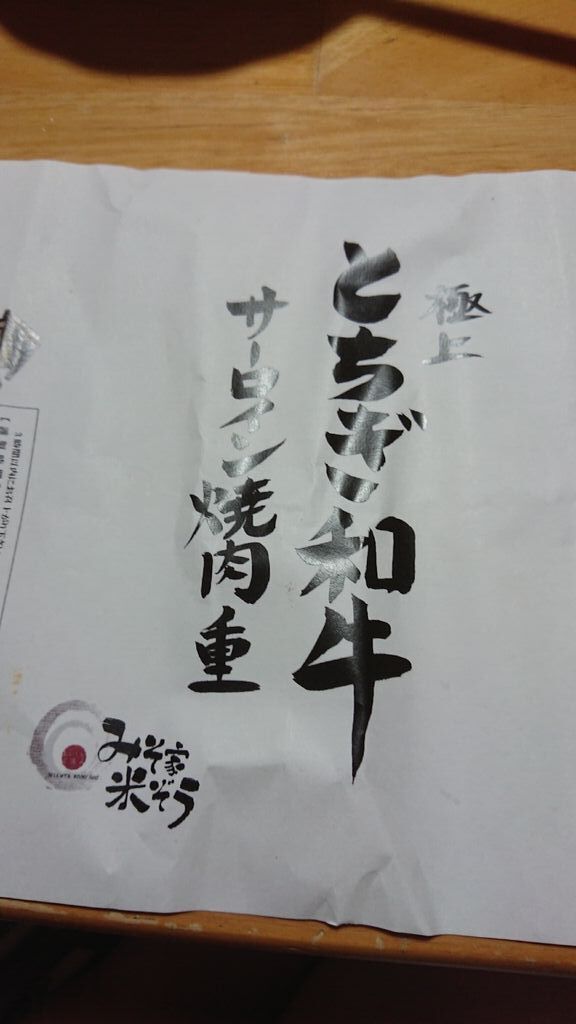 極上
とちぎ和牛
サーロイン焼肉重
みそ家
米ぞう